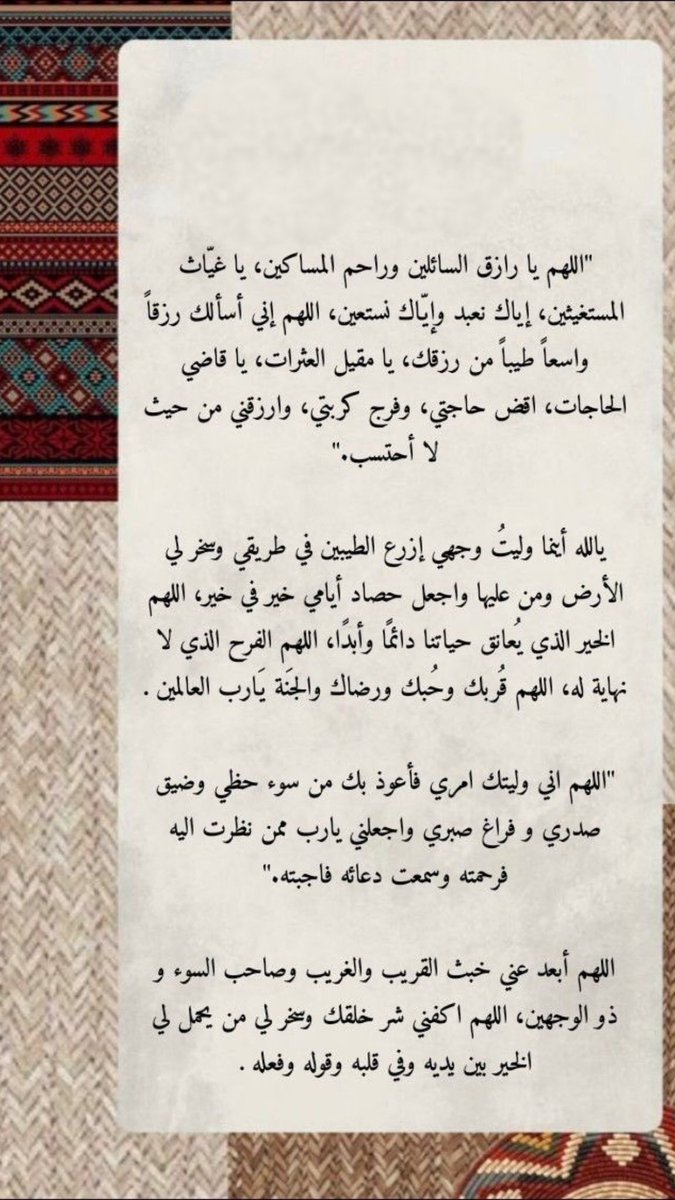 "اللهم يا رازق السائلين وراحم المساكين، يا غيّاث
المستغيثين، إياك نعبد وإيّاك نستعين، اللهم إني أسألك رزقاً
واسعاً طيباً من رزقك، يا مقيل العثرات، يا قاضي
الحاجات، اقض حاجتي، وفرج كربتي، وارزقني من حيث
لا أحتسب."
يالله أينما وليتُ وجهي إزرع الطيبين في طريقي وسخر لي
الأرض ومن عليها واجعل حصاد أيامي خير في خير، اللهم
الخير الذي يُعانق حياتنا دائمًا وأبدًا، اللهم الفرح الذي لا
نهاية له، اللهم قُربك وحُبك ورضاك والجنَة يَارب العالمين .
"اللهم اني وليتك امري فأعوذ بك من سوء حظي وضيق
صدري و فراغ صبري واجعلني يارب ممن نظرت اليه
فرحمته وسمعت دعائه فاجبته."
اللهم أبعد عني خبث القريب والغريب وصاحب السوء و
ذو الوجهين، اللهم اكفني شر خلقك وسخر لي من يحمل لي
الخير بين يديه وفي قلبه وقوله وفعله .